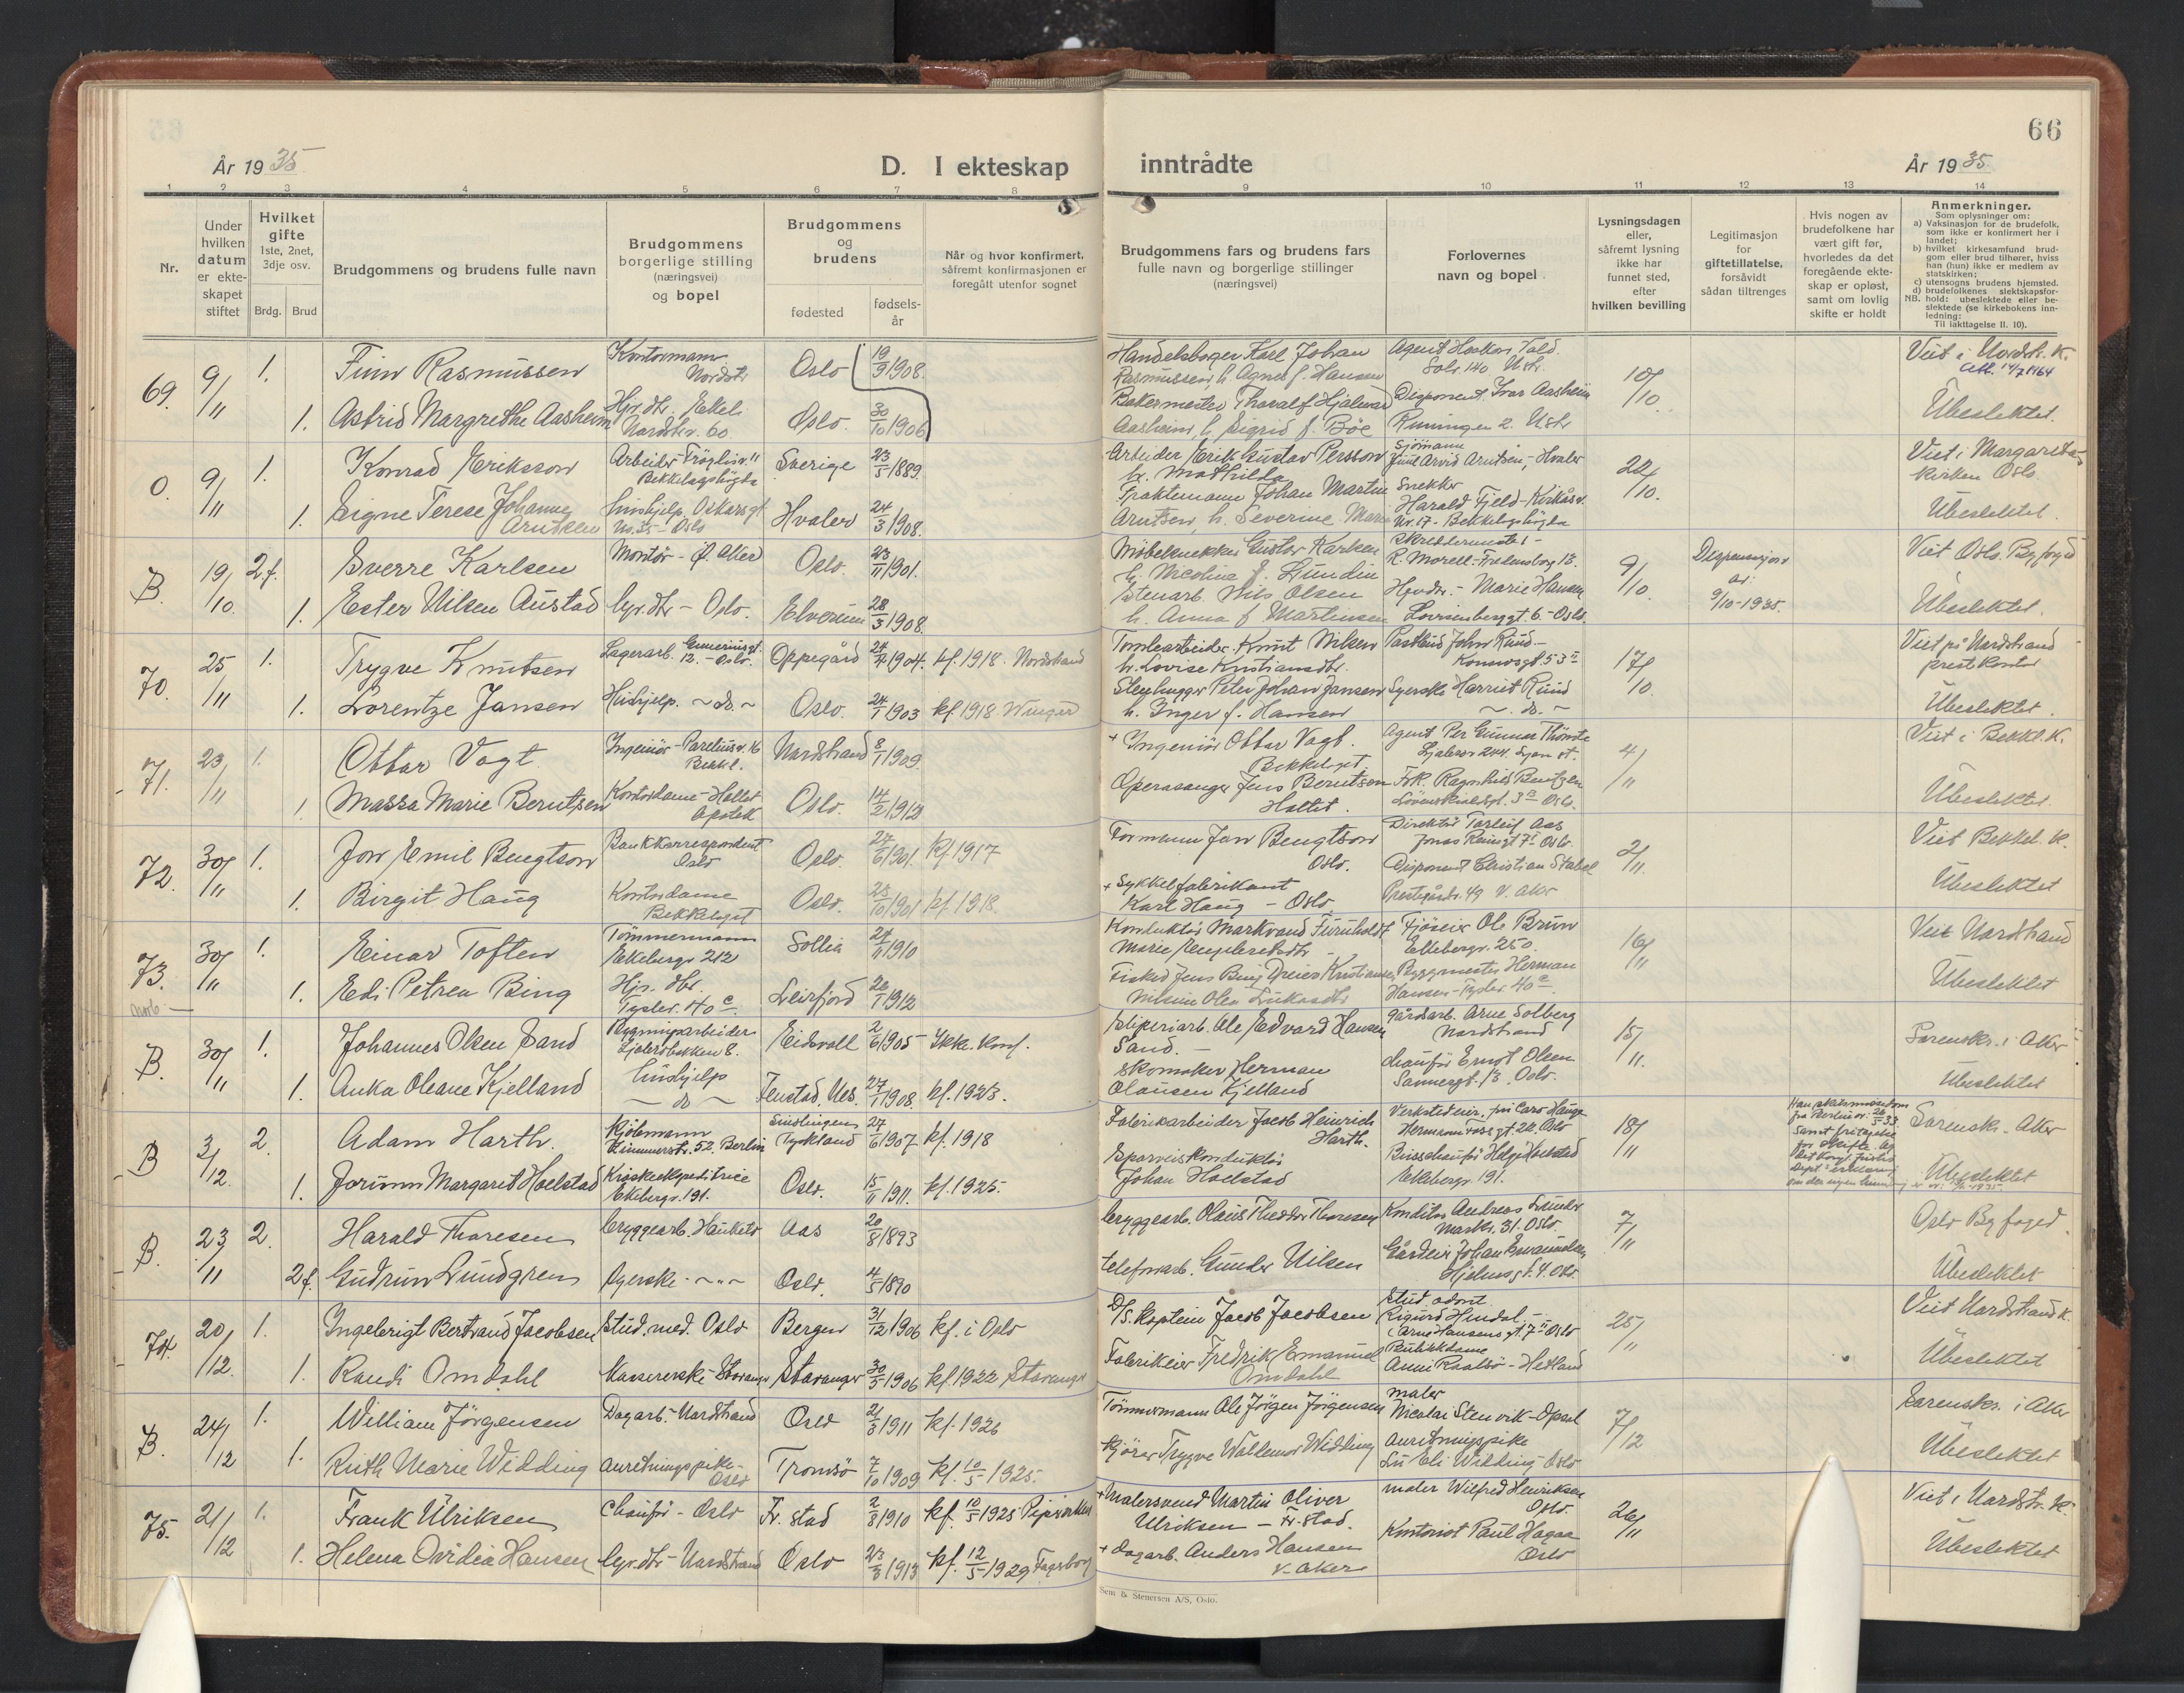 66
År 1935
D. I ekteskap
inntrådte
År 1935
1 2 3 4 5 6 7 8 9 10 11 12 13 14
Nr.
Under
hvilken
datum
er ekte-
skapet
stiftet
Hvilket
gifte
1ste, 2net,
3dje osv.
Brdg. Brud
Brudgommens og brudens fulle navn
Brudgommens
borgerlige stilling
(næringsvei)
og bopel
Brudgommens
og
brudens
fødested
fødsels-
år
Når og hvor konfirmert,
såfremt konfirmasjonen er
foregått utenfor sognet
Brudgommens fars og brudens fars
fulle navn og borgerlige stillinger
(næringsvei)
Forlovernes
navn og bopel
Lysningsdagen
eller,
såfremt lysning
ikke har
funnet sted,
efter
hvilken bevilling
Legitimasjon
for
giftetillatelse,
forsåvidt
sådan tiltrenges
Hvis nogen av
brudefolkene har
vært gift før,
hvorledes da det
foregående ekte-
skap er opløst,
samt om lovlig
skifte er holdt
Anmerkninger.
Som oplysninger om:
a) Vaksinasjon for de brudefolk,
som ikke er konfirmert her i
landet;
b) hvilket kirkesamfund brud-
gom eller brud tilhører, hviss
han (hun) ikke er medlem av
statskirken;
c) utensogns brudens hjemsted.
d) brudefolkenes slektskapsfor-
NB. hold: ubeslektede eller be-
slektede (se kirkebokens inn-
ledning:
Til iakttagelse II. 10).
69. 9/11 1. Finn Rasmussen Kontormann Nordstr. Oslo 19/9 1908.
Handelsborger Karl Johan
Rasmussen, h. Agnes f. Hansen
Agent Haakon
Solv. 140 Nstr.
10/10
Viet i Nordstr. K.
Att. 14/7 1964
1. Astrid Margrethe Aasheim Hjv. dtr. Ekel
Nordstr. 60 Oslo. 30/10 1906
Bakermester Thoralf Hjalmar
Aasheim, h. Sigrid f. Bøe
Disponent Ivar Aasheim
2. Nstr
Übeslektet.
0. 9/11 1. Konrad Eriksson Arbeider
Bekkelagshögda Sverige 23/5 1889.
Arbeider Erik Gustav Persson
h. Mathilda
Sjømann
Juul Arvid Arntsen, Hvaler
22/10.
Viet i Margareta-
kirken Oslo
1. Signe Terese Johanne
Arntsen Hushjelp, Oskarsgt.
Oslo Hvaler 24/3 1908.
Fraktemann Johan Martin
Arntsen, h. Severine Marie
Snekker
Harald Fjeld - Kirkåsv.
Nr. 17 - Bekkelagshögda
Übeslektet.
B. 19/10. 2 f. Sverre Karlsen Montør - Ø. Aker Oslo. 23/11 1901.
Möbelsnekker Gustav Karlsen
h. Nicoline f. Lundin
Skreddermester -
R. Morell - Fredensborg 13.
9/10
Dispensasjon
av
9/10-1935.
Viet Oslo Byfoged
1. Ester Nilsen Austad Hjv. dtr - Oslo. Elverum 28/3 1908.
Stenarb. Nils Olsen
h. Anna f. Martinsen
Hjvdtr. - Marie Hansen
Lovisenberggt. 6 - Oslo.
Übeslektet.
70. 25/11 1. Trygve Knutsen Lagerarb. Gunerius gt.
12. - Oslo. Oppegård 1904. kf. 1918. Nordstrand
Tomtearbeider Knut Nilsen
h. Lovise Kristiansdtr.
Postbud John Ruud -
17/10.
Viet på Nordstrand
prestkontor
1. Lorentze Jansen Hushjelp. ~ do. ~ Oslo. 24/1 1903 kf. 1918
Stenhugger Peter Johan Jansen
h. Inger f. Hansen
Syerske Harriet Ruud
~ do. ~
Übeslektet.
71. 23/11 1. Ottar Vogt. Ingeniør - Pareliusv. 16
Bekkl. Nordstrand 8/1 1909.
+ Ingeniör Ottar Vogt.
Bekkelaget
Agent Per Gunnar Thömte
Ljabrov 244. Ljan st.
4/11
Viet i Bekkl. K.
1. Massa Marie Berntsen Kontordame - Holtet
Apotek Oslo. 14/2 1912
Operasanger Jens Berntsen
Holtet.
Frk. Ragnhild Bentzen
Løvenskioldsgt. 3 Oslo.
Übeslektet.
72. 30/11 1. Jon Emil Bengtson Bankkorrespondent
Oslo Oslo. 24/6 1901. kf. 1917
Formann Jan Bengtson
Oslo.
Direktör Torleif Aas
Jonas Reinsgt 7 Oslo.
2/11.
Viet Bekkel. K.
1. Birgit Haug Kontordame
Bekkelaget Oslo. 25/10 1901 kf. 1918.
+ Sykkelfabrikant
Karl Haug - Oslo
Disponent Christian Stabel
Prestegårdv. 49 V. Aker
Übeslektet
73. 30/11 1. Einar Toften Tömmermann
Ekebergv 212 Sollia 24/11 1910
Konduktör Markvand Furuholdt
Marie Engebretsdtr
Fjöseier Ole Bruun
Ekebergv. 250.
16/11
Viet Nordstrand
1. Edi Petrea Bing Hjv. dtr.
40 c Leirfjord 20/1 1912
Fisker Jens Bing Dreier Kristiansen
Nilsine Olea Lukasdtr
Byggmester Herman
Hansen - 40 c.
Übeslektet
B. 30/11 1. Johannes Olsen Sand Bygningsarbeider
Ljabrobakken 8. Eidsvoll 2/6 1905 Ikke konf.
Sliperiarb. Ole Edvard Hansen
Sand.
Gårdsarb. Arne Solberg
Nordstrand
15/11.
Sorenskr. i Aker
1. Anka Oleane Kjelland Hushjelp
~ do ~ Fenstad, Nes. 27/1 1908. kf. 1923.
Skomaker Herman
Olausen Kjelland
Chauför Ernst Olsen
Sannergt. 13 Oslo.
Übeslektet
B 3/12. 2. Adam Harth. Kjöbmann
Zimmerstr. 52. Berlin Sindlingen
Tyskland 27/6 1907 kf. 1918
Fabrikarbeider Jacob Heinrich
Harth.
Verkstedeier
Herman Foss gt 22. Oslo
18/11
Sorenskr. Aker
1. Jorunn Margaret Hoelstad Kioskekspeditrice
Ekebergv. 191. Oslo. 15/11 1911. kf. 1925.
Sporveiskonduktör
Johan Hoelstad
Busschauför Helge Hoelstad
Ekebergv. 191.
Übeslektet
B. 23/11 2. Harald Thoresen Bryggearb. Hauketo Aas 20/8 1893
Bryggearb. Olaus Theodor Thoresen
Konditor Andreas Lunder
Markv. 31. Oslo.
7/11
Oslo Byfoged.
2 f. Gudrun Lundgren Syerske - ~ " ~ Oslo. 4/5 1890
Telefonarb. Gunder Nilsen
Gårdeier Johan Emanuelsen
Hjelmsgt. 4. Oslo.
Übeslektet
74. 20/12. 1. Ingebrigt Bertrand Jacobsen Stud. med. Oslo Bergen 31/12 1906 kf. i Oslo
D/S. kaptein Jacob Jacobsen
Stud odont
Sigurd Hindal -
Arne Hansens gt. 7 Oslo
25/11
Viet Nordstrand K.
1. Randi Omdahl Massererske - Stavanger Stavanger 30/5 1906 kf. 1922 Stavanger
Fabrikeier Fredrik Emanuel
Omdahl
Butikkdame
Anni - Hetland
Übeslektet
B. 24/12 1. William Jörgensen Dagarb. - Nordstrand Oslo 21/3 1911 kf. 1926
Tömmermann Ole Jörgen Jörgensen
Maler
Nicolai Stenvik - Opsal
7/12
Sorenskr. i Aker
1. Ruth Marie Widding Anretningspike -
Oslo Tromsö 7/10 1909 kf. 10/5 1925.
Kjörer Trygve Waldemar Widding
Anretningspike
Eli Widding - Oslo
Übeslektet
75. 21/12 1. Frank Ulriksen Chauför - Oslo Fr. stad 2/8 1910 kf. 10/5 1925 Pipervika
+ Malersvend Martin Oliver
Ulriksen - Fr. stad.
Maler Wilfred Henriksen
Oslo.
26/11
Viet i Nordstr. K.
1. Helena Ovidia Hansen Hjv. dtr - Nordstrand Oslo 23/3 1913 kf. 12/5 1929 Fagerborg
+ Dagarb. Anders Hansen
V. Aker
Kontorist Paul Hagaa
Oslo
Übeslektet
Sem & Stenersen A/S, Oslo.